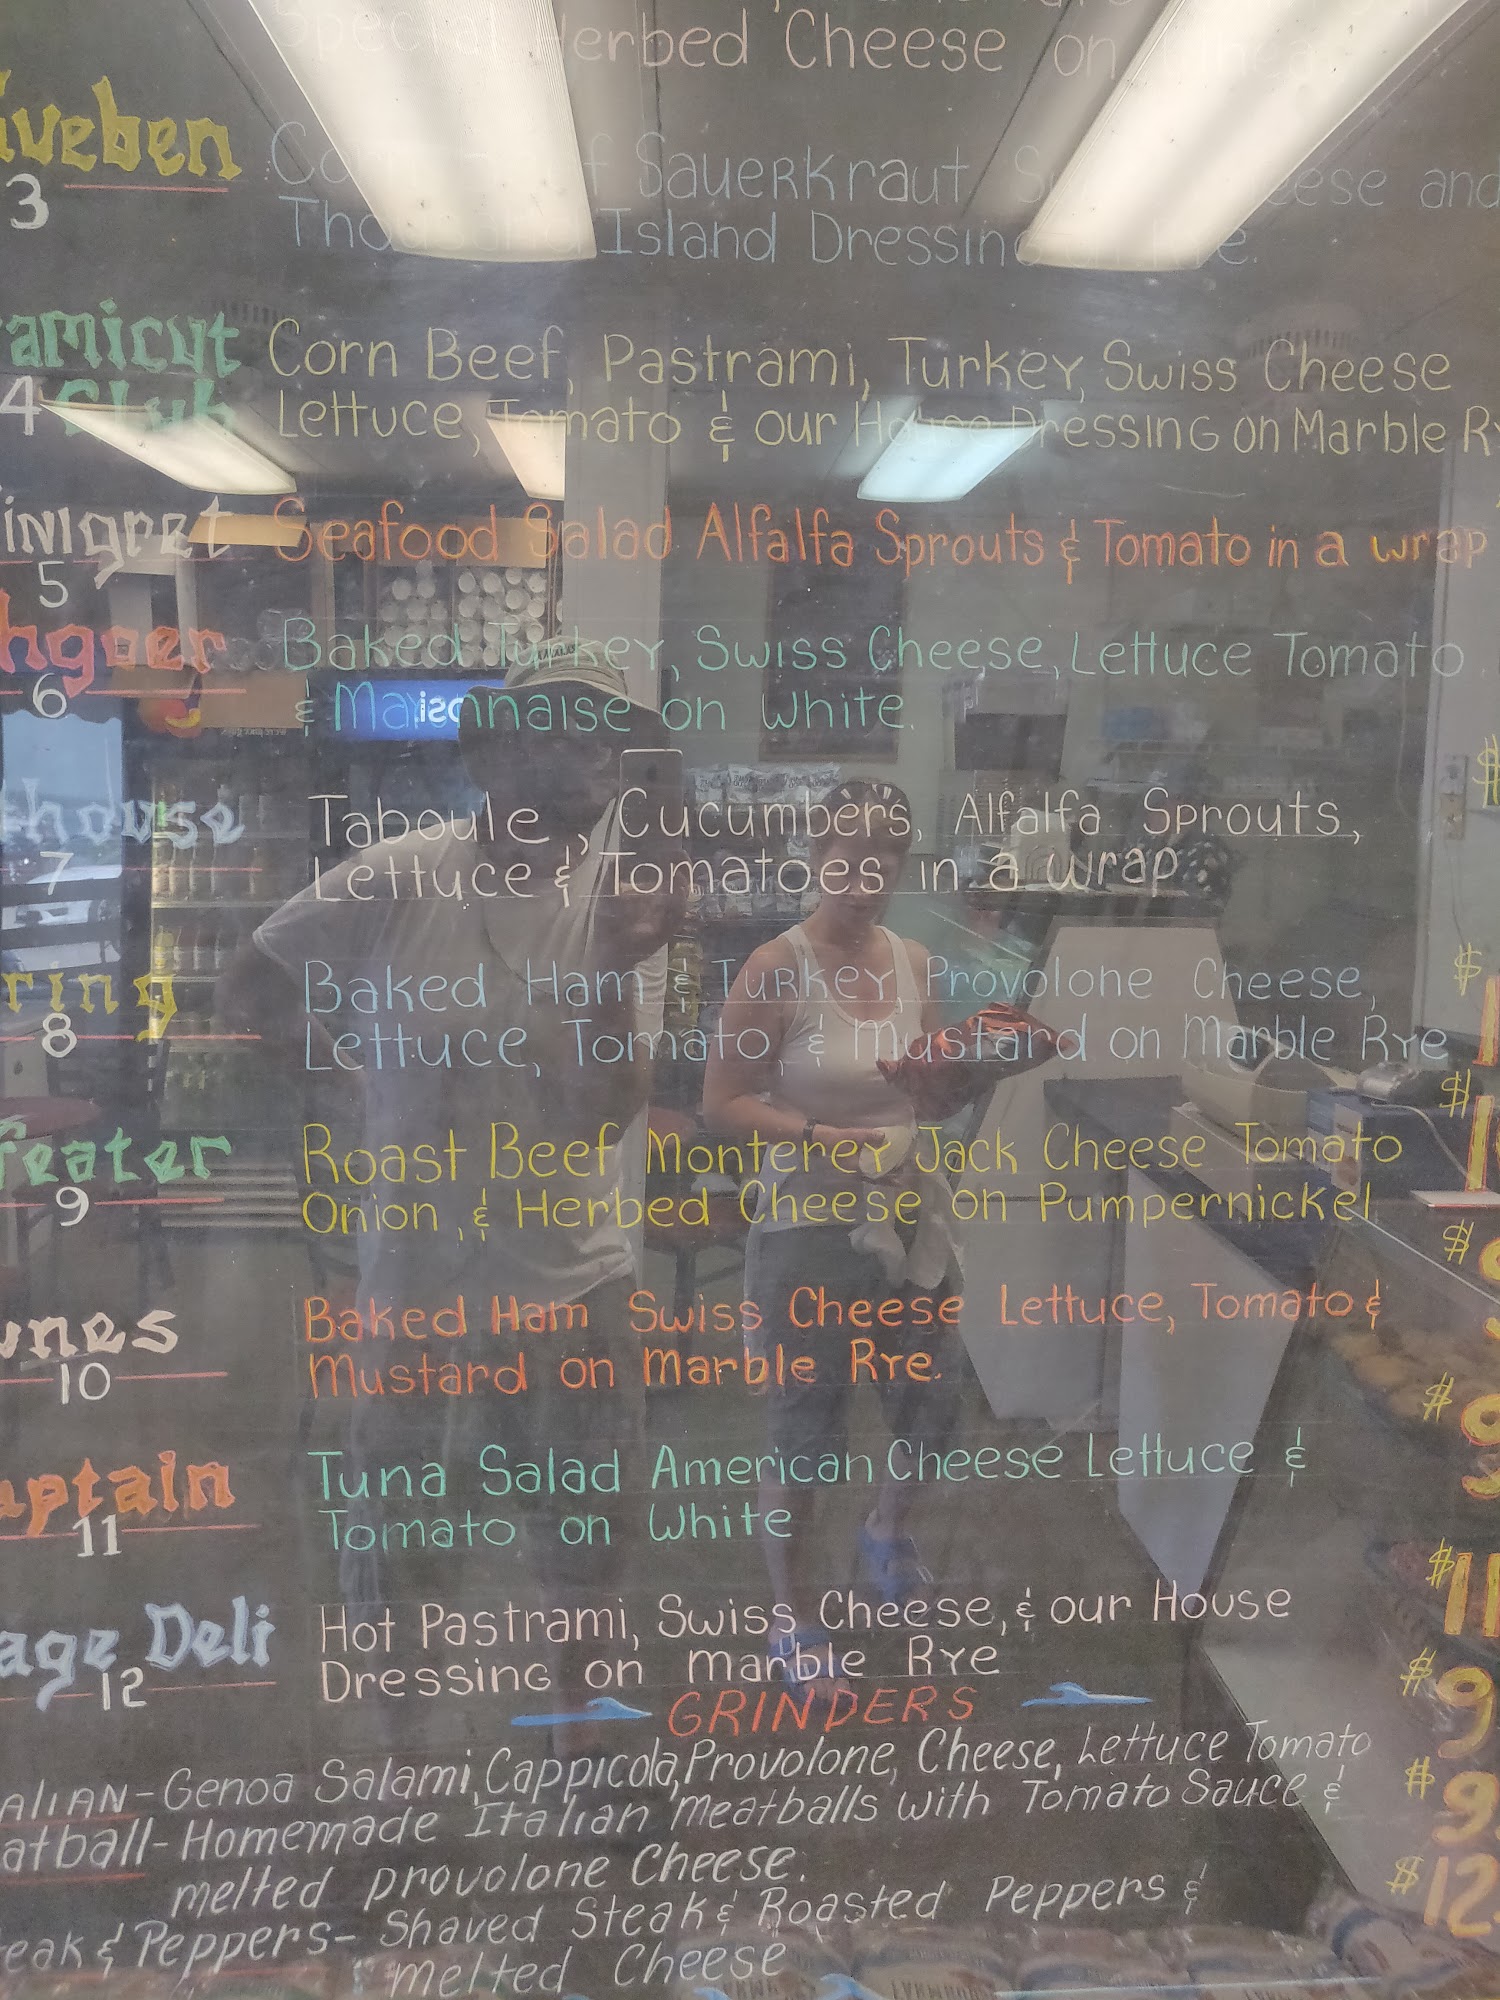 Special Herbed Cheese on
iveben Sauerkraut and
3 Island Dressing
amicut Corn Beef, Pastrami, Turkey, Swiss Cheese
4 Club Lettuce, Tomato & our House Dressing on Marble R
inigret Seafood Salad Alfalfa Sprouts & Tomato in a wrap
5
hgoer Baked Turkey, Swiss Cheese, Lettuce Tomato
6 & Mayonnaise on White.
house Taboule, Cucumbers, Alfalfa Sprouts,
7 Lettuce & Tomatoes in a wrap
ring Baked Ham & Turkey, Provolone Cheese,
8 Lettuce, Tomato, & Mustard on Marble Rye
eater Roast Beef Monterey Jack Cheese Tomato
9 Onion, & Herbed Cheese on Pumpernickel
unes Baked Ham Swiss Cheese Lettuce, Tomato &
10 Mustard on Marble Rye.
aptain Tuna Salad American Cheese Lettuce &
11 Tomato on White
age Deli Hot Pastrami, Swiss Cheese, & our House
12 Dressing on marble Rye
GRINDERS
alian - Genoa Salami, Cappicola, Provolone, Cheese, Lettuce Tomato $9
atball - Homemade Italian meatballs with Tomato Sauce & $9
melted provolone Cheese.
eak & Peppers - Shaved Steak & Roasted Peppers & $12
melted Cheese